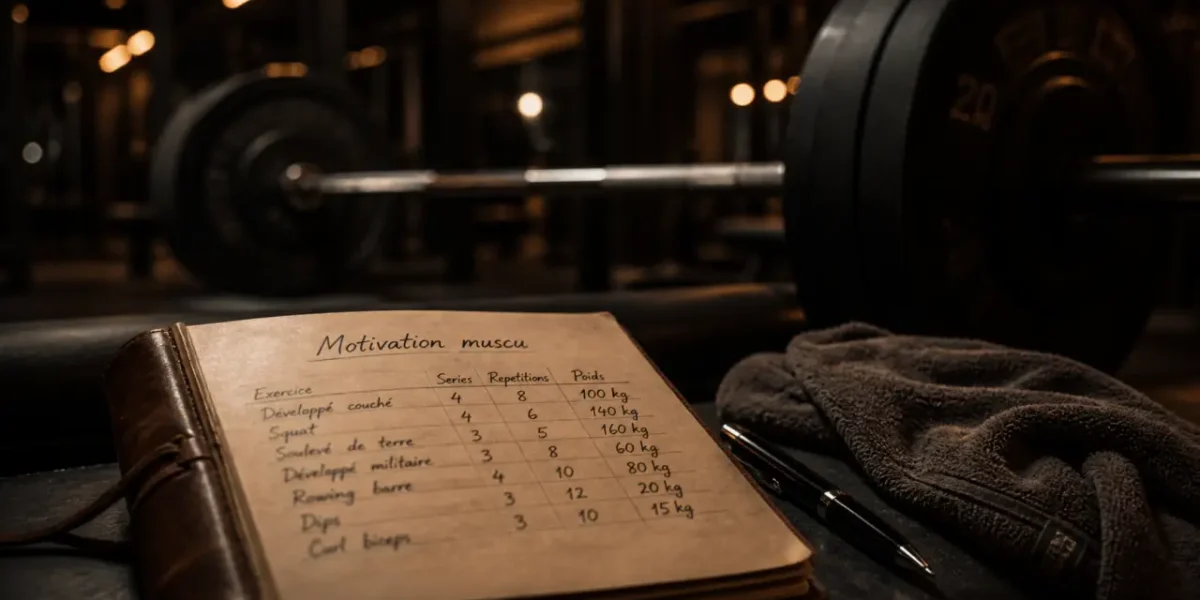 Motivation muscu
Exercice Series Repetitions Poids
Développé couché 4 8 100 kg
Squat 4 6 140 kg
Soulevé de terre 3 5 160 kg
Développé militaire 3 8 60 kg
Rowing barre 4 10 80 kg
Dips 3 12 20 kg
Curl biceps 3 10 15 kg
20